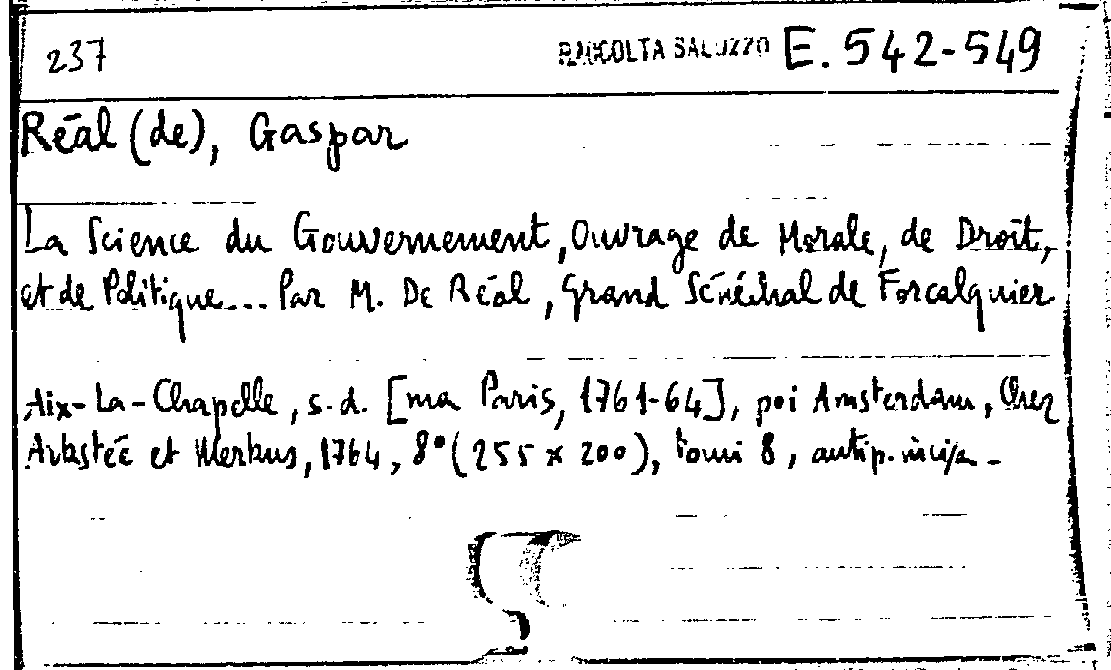 237 RACCOLTA SALUZZO E. 542-549
Réal (de), Gaspar
La Science du Gouvernement, Ouvrage de Morale, de Droit,
et de Politique... Par M. De Réal, Grand Sénéchal de Forcalquier
Aix-La-Chapelle, s.d. [ma Paris, 1761-64], poi Amsterdam, Chez
Arkstée et Merkus, 1764, 8° (255 x 200), tomi 8, antip. incisa -